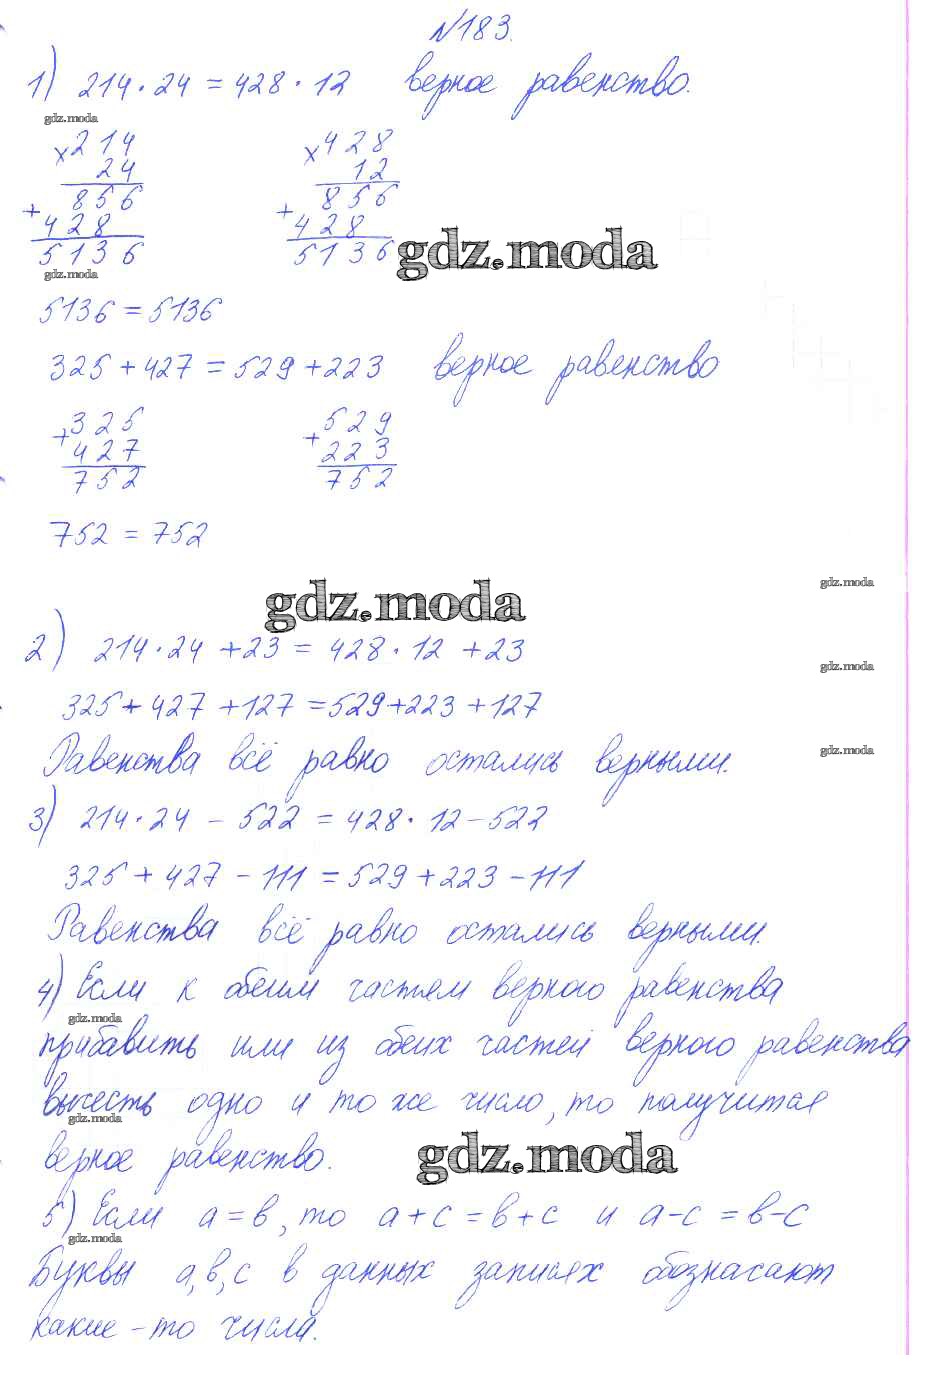 №183.
1) 214·24=428·12 верное равенство.
gdz.moda
×214 ×428
24 12
856 856
+428 +428
5136 5136
gdz.moda
gdz.moda
5136=5136
325+427=529+223 верное равенство
+325 +529
427 223
752 752
752=752
gdz.moda
gdz.moda
2) 214·24+23=428·12+23
gdz.moda
325+427+127=529+223+127
Равенства всё равно остались верными.
gdz.moda
3) 214·24-522=428·12-522
325+427-111=529+223-111
Равенства всё равно остались верными.
4) Если к обеим частям верного равенства
gdz.moda
прибавить или из обеих частей верного равенства
вычесть одно и то же число, то получится
gdz.moda
верное равенство.
gdz.moda
5) Если a=в, то a+c=в+c и a-c=в-c
gdz.moda
Буквы a,в,c в данных записях обозначают
какие-то числа.